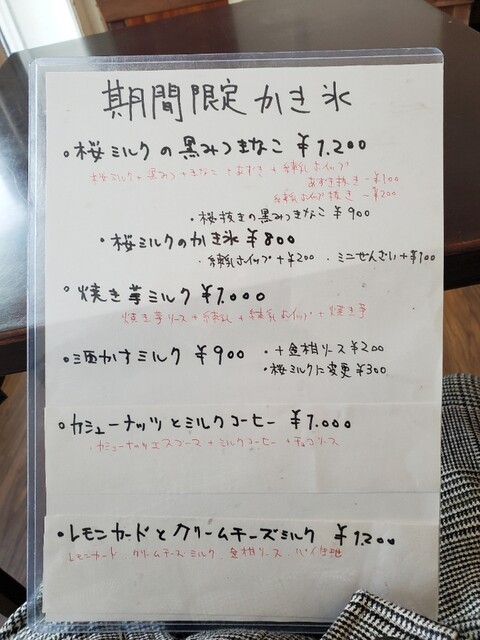 期間限定かき氷
・桜ミルクの黒みつきなこ ¥1,200
桜ミルク+黒みつ+きなこ+あずき+練乳ホイップ
あずき抜き -¥100
練乳ホイップ抜き -¥200
・桜抜きの黒みつきなこ ¥900
・桜ミルクのかき氷 ¥800
・練乳ホイップ+¥200 ・ミニぜんざい+¥100
・焼き芋ミルク ¥1,000
焼き芋ソース+練乳+練乳ホイップ+焼き芋
・酒かすミルク ¥900 ・+金柑ソース ¥200
・桜ミルクに変更 ¥300
・カシューナッツとミルクコーヒー ¥1,000
・カシューナッツエスプーマ+ミルクコーヒー+チョコソース
・レモンカードとクリームチーズミルク ¥1,200
レモンカード クリームチーズミルク 金柑ソース パイ生地